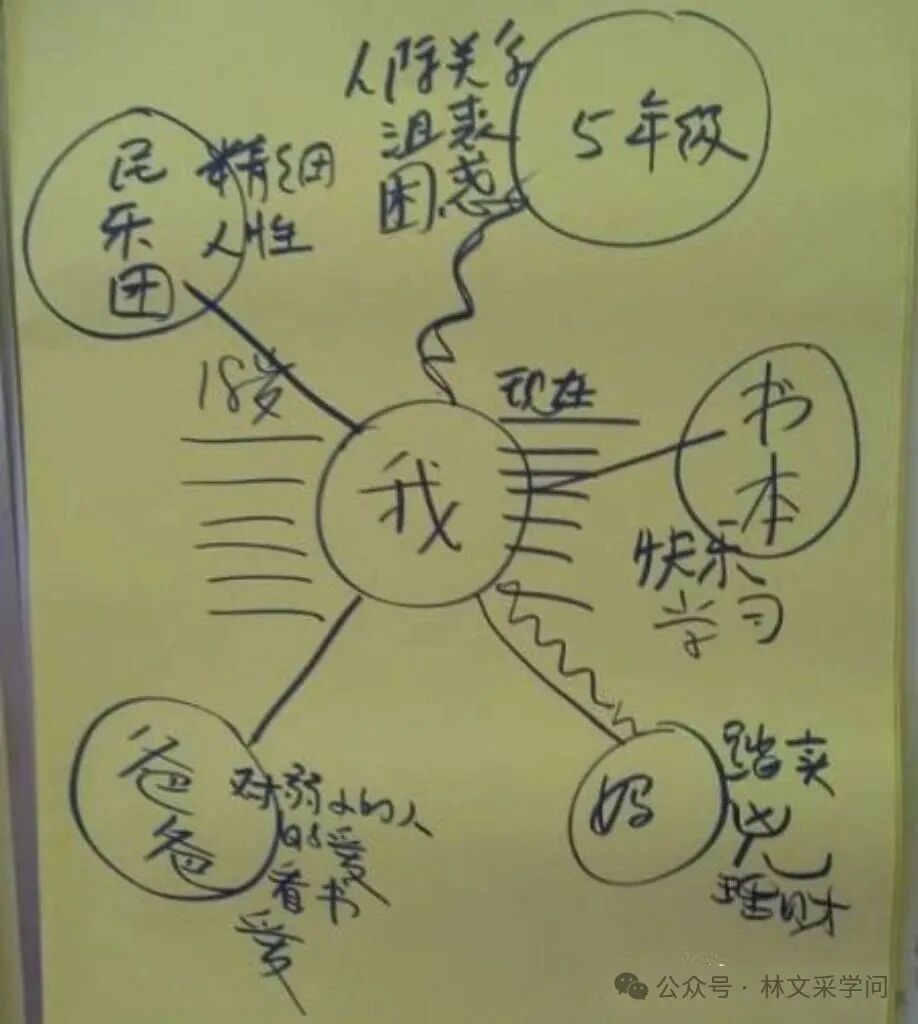 人际关系
沮丧
困惑
5年级
民乐团
精细
人性
18岁
现在
我
书本
快乐
学习
爸爸
对弱小的人
的爱
看书
爱
妈
踏实
凶
理财
公众号·林文采学问